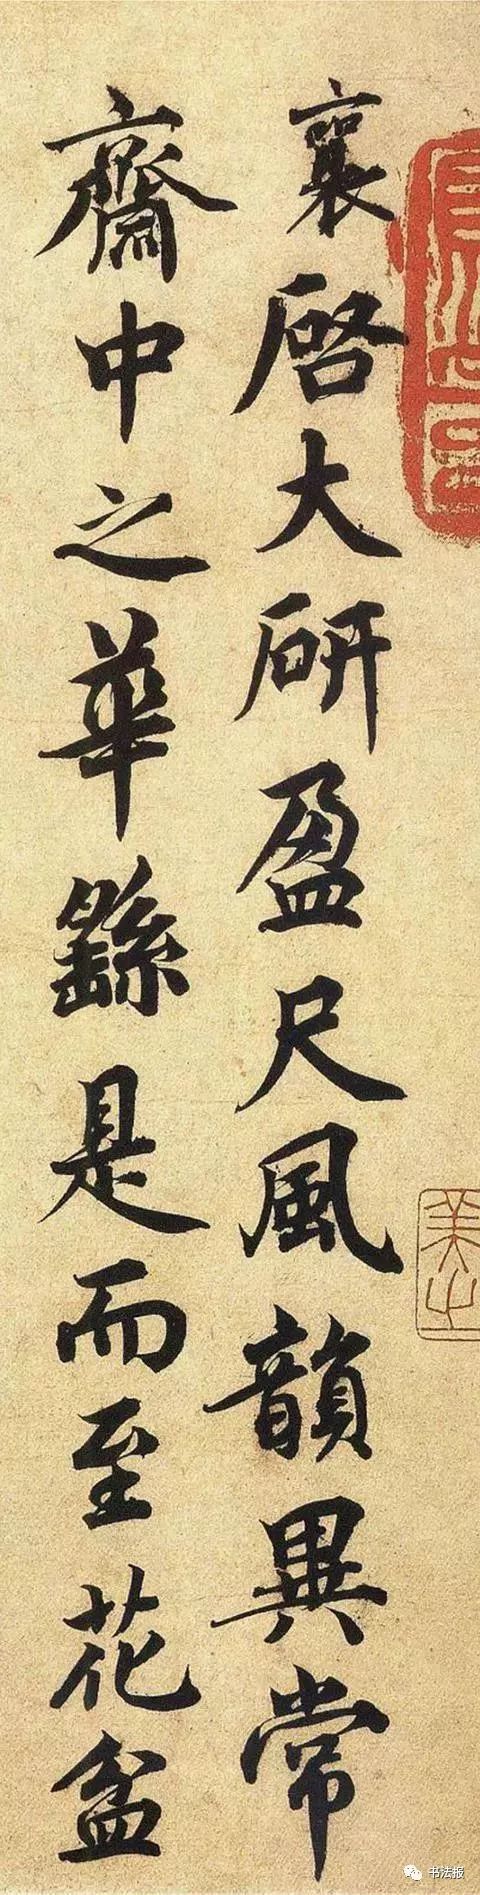 襄啓大研盈尺風韻異常
齋中之華繇是而至花盆
书法报